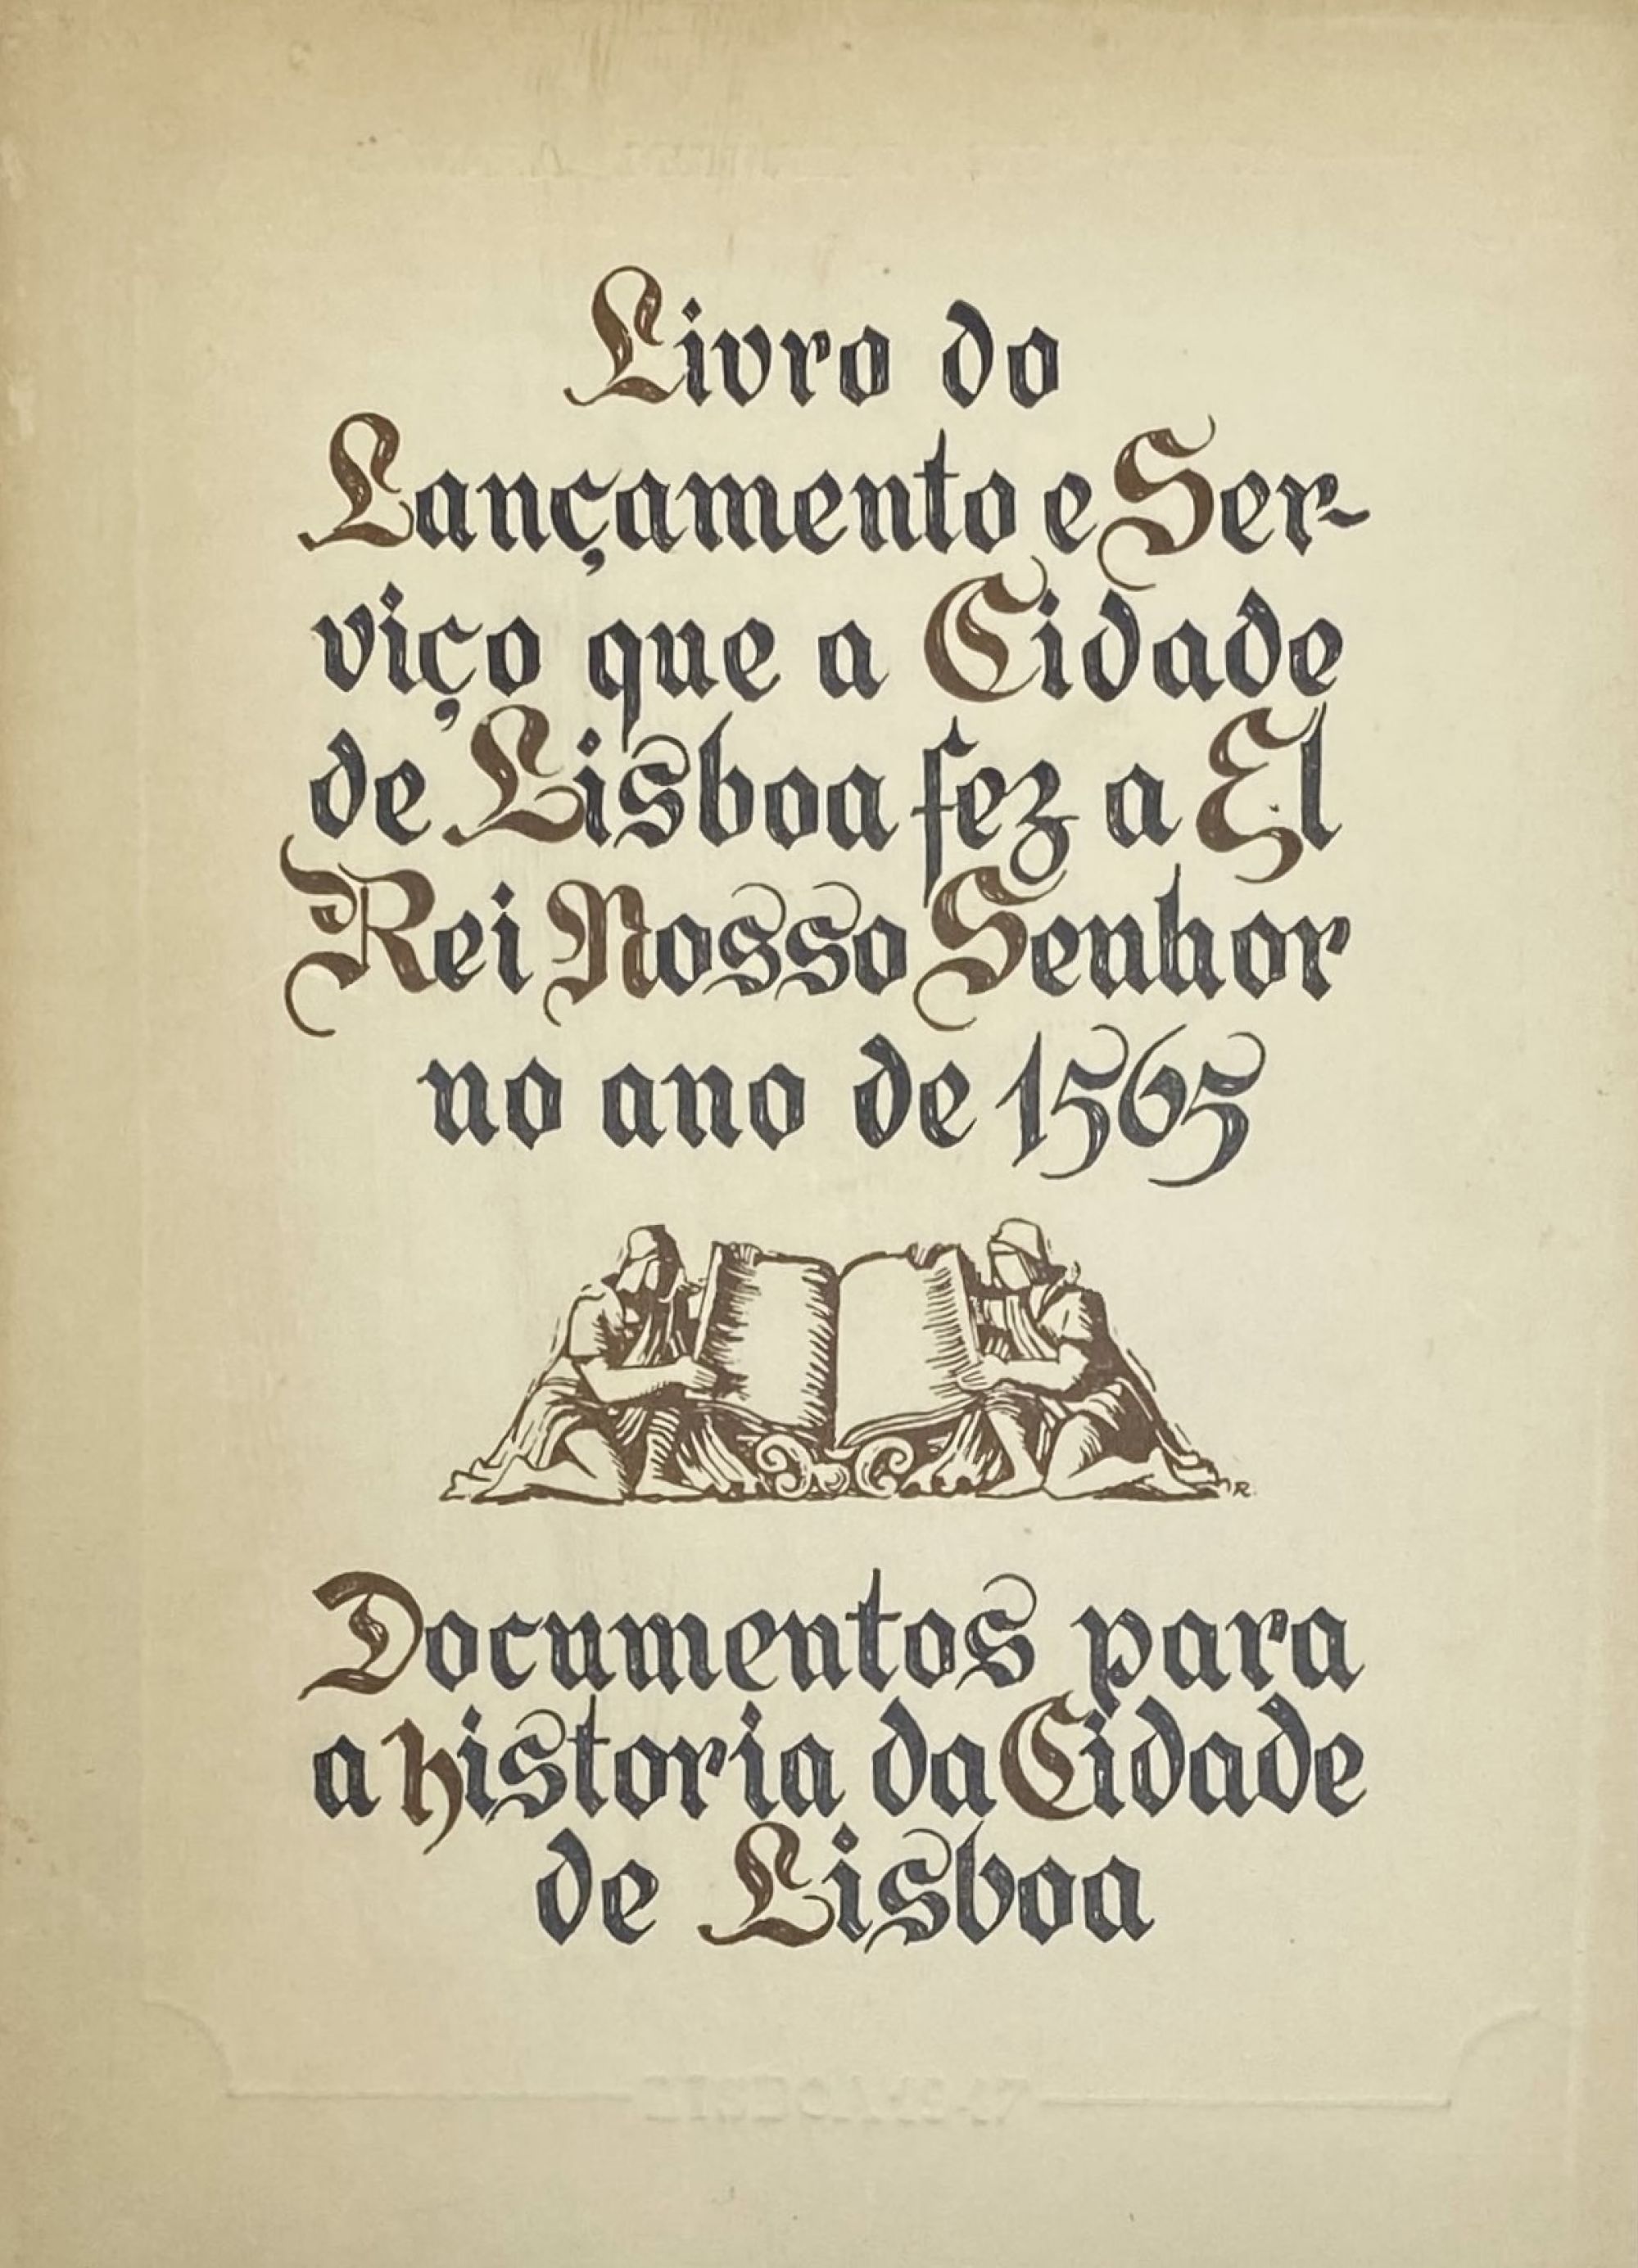 Livro do
Lançamento e Ser-
viço que a Cidade
de Lisboa fez a El
Rei Nosso Senhor
no ano de 1565
R.
Documentos para
a historia da Cidade
de Lisboa